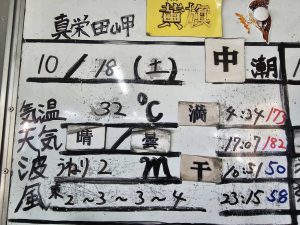 真栄田岬 黄旗
10/18(土) 中潮
気温 32℃ 満 4:34/173
天気 晴/曇 17:07/182
波 うねり2m 干 10:51/50
風 東2~3~3~4 23:15/58